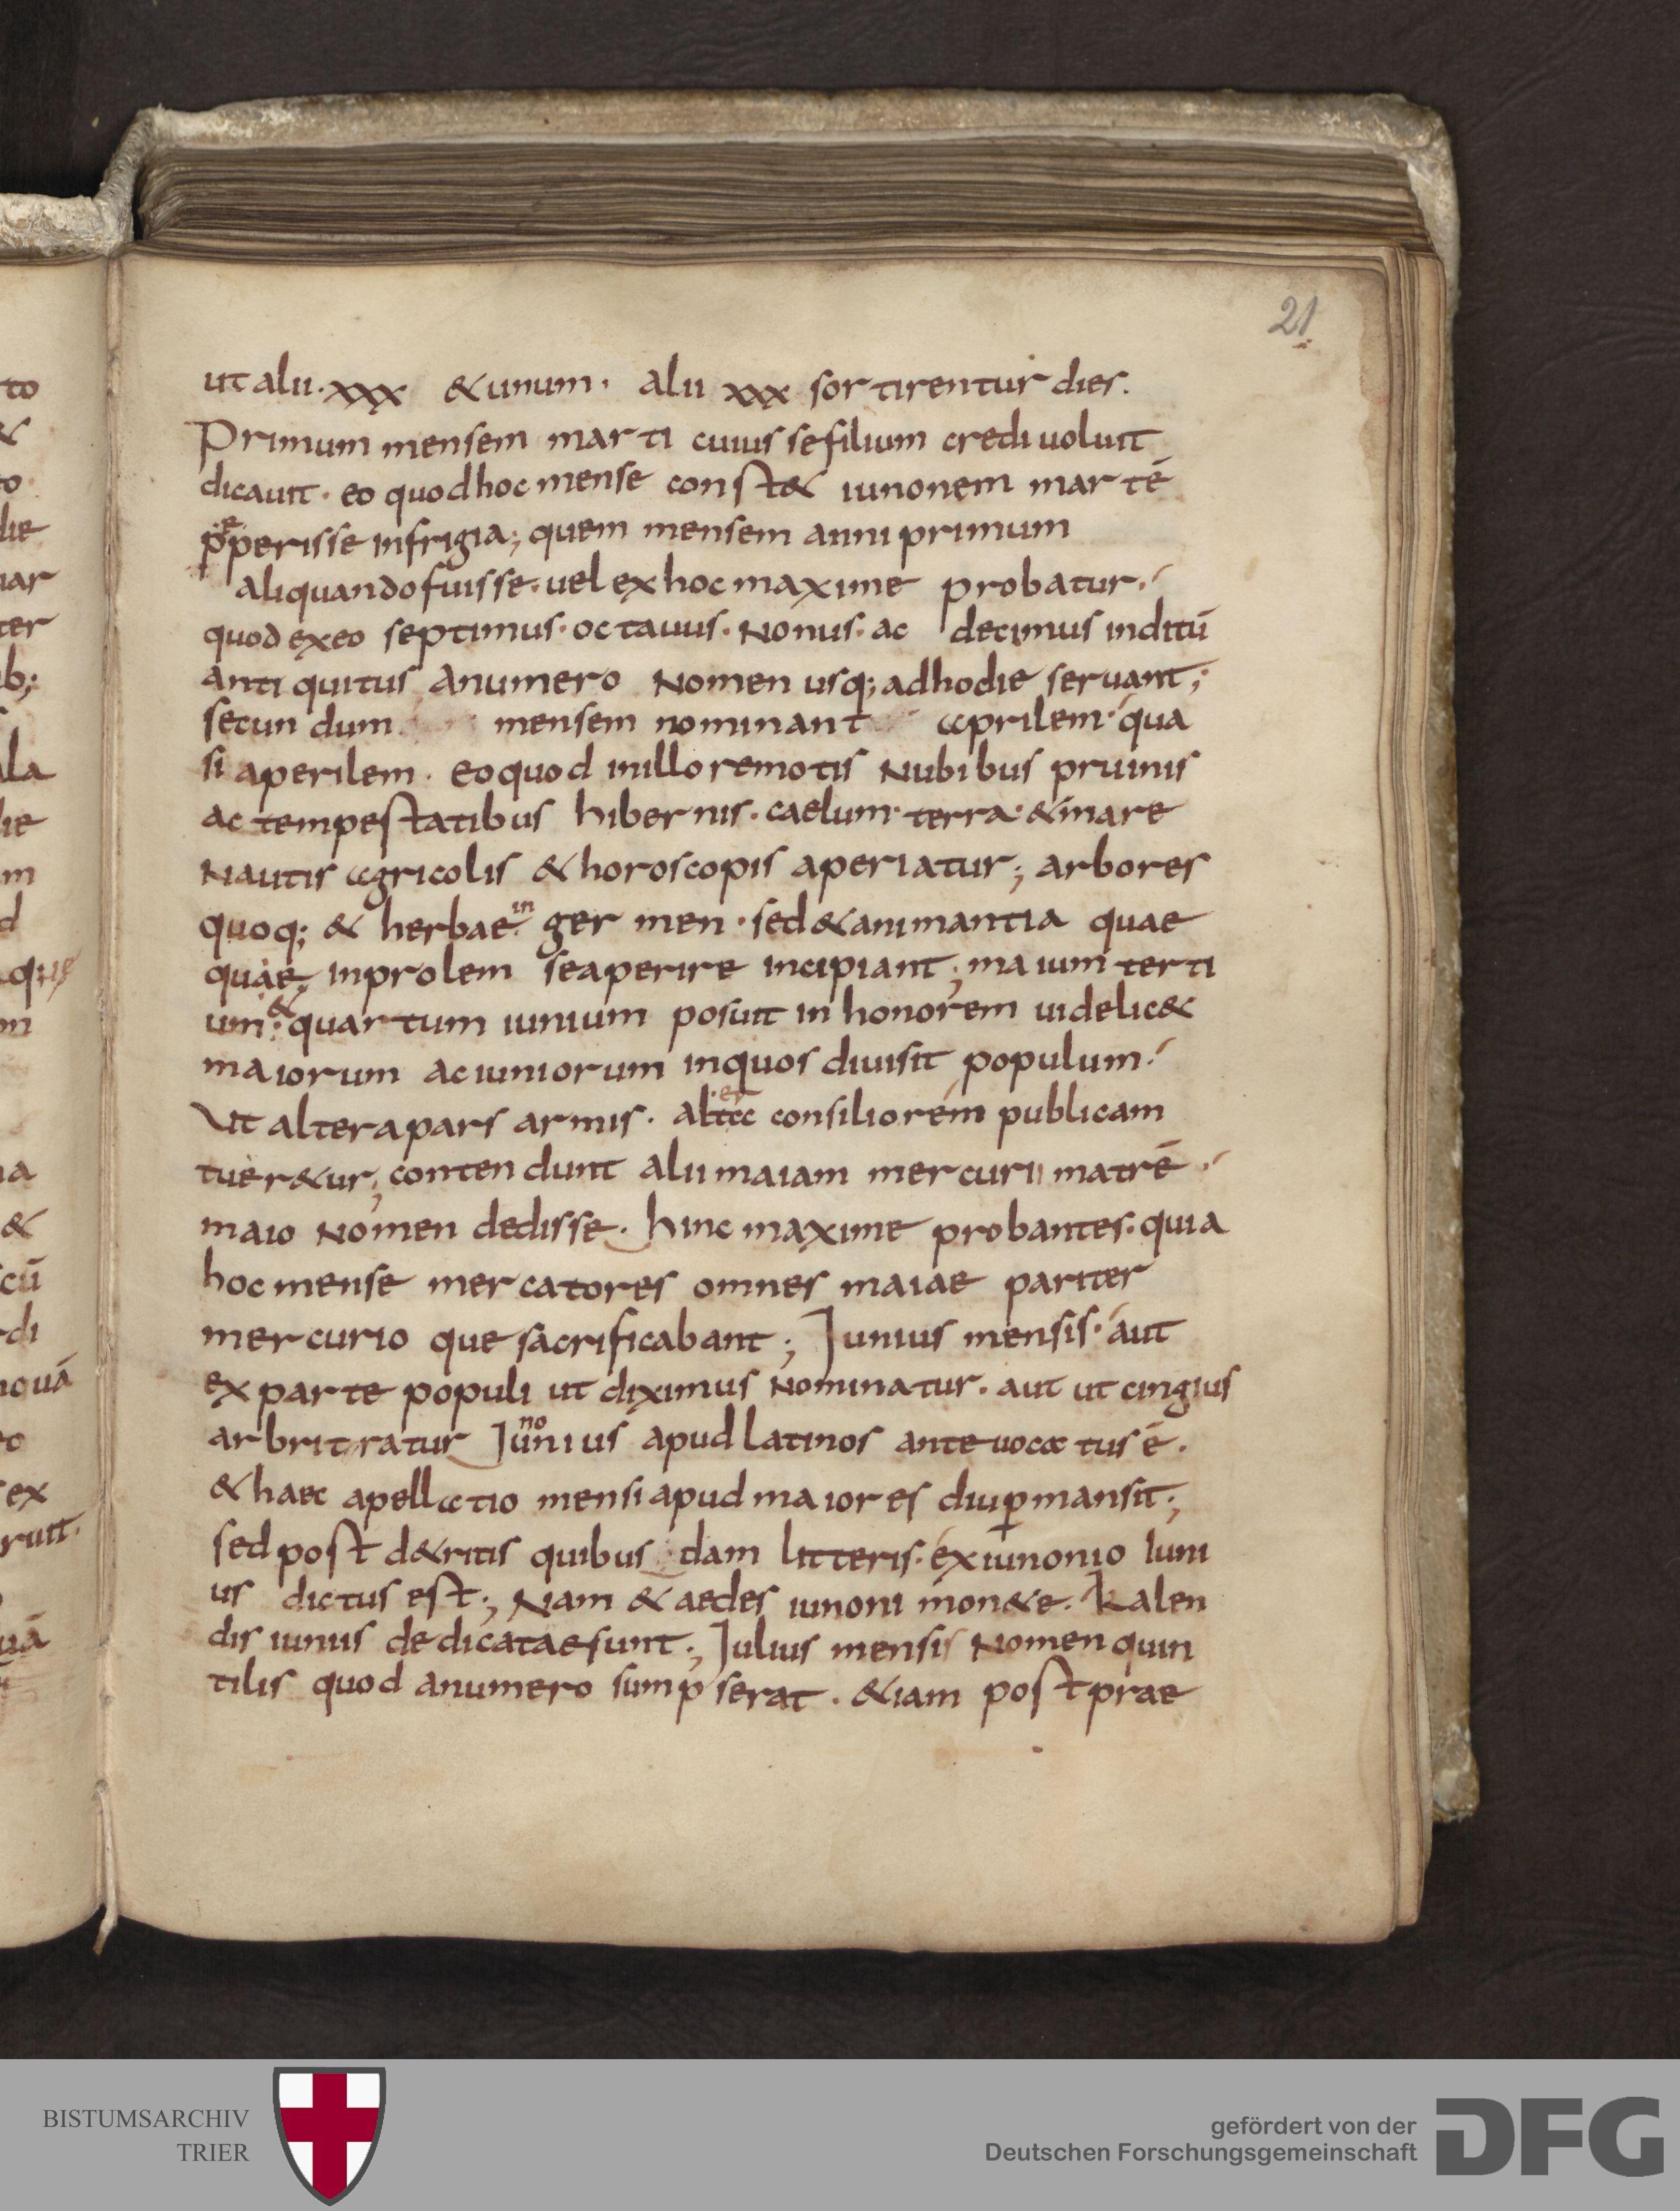 21
ut alii · xxx & unum · alii xxx sortirentur dies.
Primum mensem marti cuius se filium credi uoluit
dicauit · eo quod hoc mense const& iunonem martē
p̄perisse in frigia; quem mensem anni primum
aliquando fuisse · uel ex hoc maxime probatur ·
quod ex eo septimus · octauus · Nonus · ac decimus inditū
antiquitus a numero Nomen usq; ad hodie seruant;
secundum mensem nominant aprilem · qua
si aperilem · eo quod in illo remotis Nubibus pruinis
ac tempestatibus hibernis · caelum · terra · & mare
Nautis agricolis & horoscopis aperiatur; arbores
quoq; & herbae in germen · sed & animantia quae
quae in prolem se aperire incipiant; maium terti
um · & quartum iunium posuit in honorem uidelic&
maiorum ac iuniorum in quos diuisit populum ·
Ut altera pars armis · altera consilio rem publicam
tuer&ur; contendunt alii maiam mercurii matrē ·
maio Nomen dedisse · hinc maxime probantes · quia
hoc mense mercatores omnes maiae pariter
mercurioque sacrificabant; Iunius mensis · aut
ex parte populi ut diximus Nominatur · aut ut cingius
arbritratur Iunonius apud latinos ante uocatus ē ·
& haec apellatio mensi apud maiores diu ꝑmansit;
sed post d&ritis quibusdam litteris · ex iunonio Iuni
us dictus est; Nam & aedes iunoni mon&e · Kalen
dis iunis dedicatae sunt; Iulius mensis Nomen quin
tilis quod a numero sumpserat · &iam post prae
to
&
die
uar
ter
b;
la
die
m
d
na
&
cū
di
nouā
ex
BISTUMSARCHIV
TRIER
gefördert von der
Deutschen Forschungsgemeinschaft
DFG